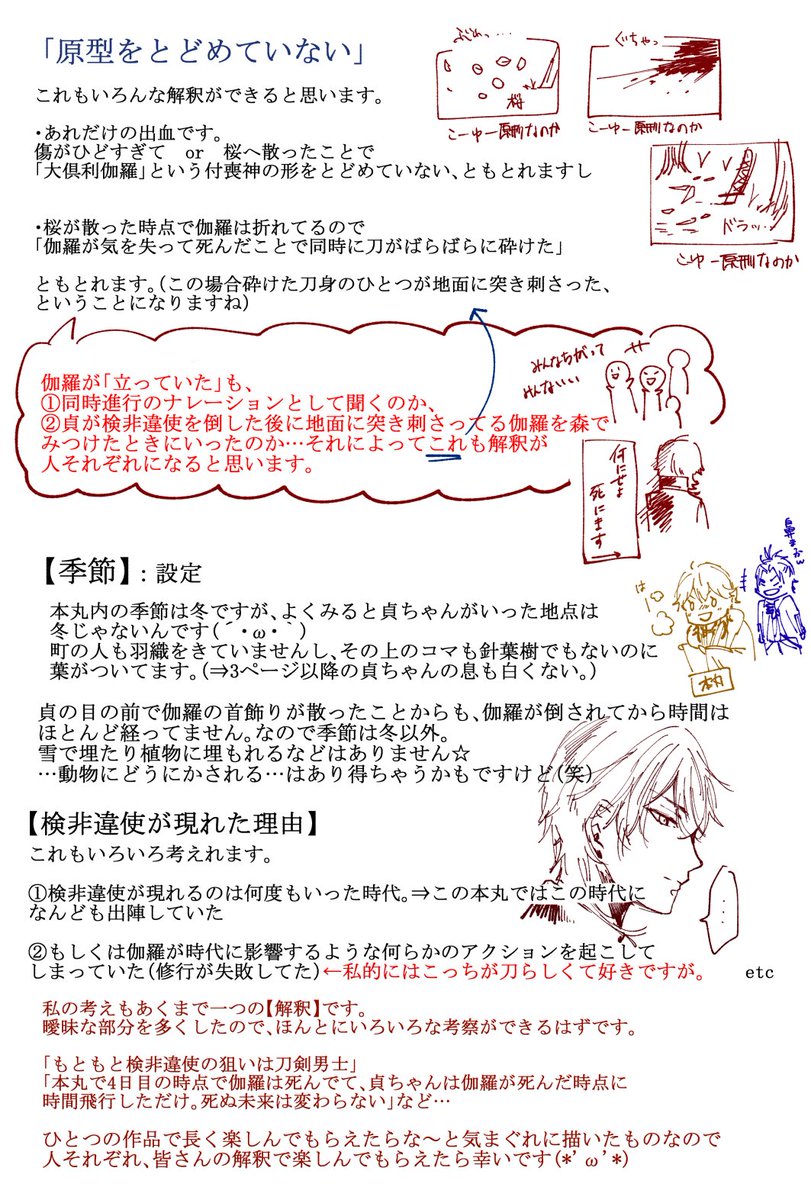 「原型をとどめていない」
これもいろんな解釈ができると思います。
・あれだけの出血です。
傷がひどすぎて　or　桜へ散ったことで
「大倶利伽羅」という付喪神の形をとどめていない、ともとれますし
・桜が散った時点で伽羅は折れてるので
「伽羅が気を失って死んだことで同時に刀がばらばらに砕けた」
ともとれます。（この場合砕けた刀身のひとつが地面に突き刺さった、
ということになりますね）
ぐいちゃっ
桜
こーゆー原型なのか
こーゆー原型なのか
ドラッ…
こゆー原型なのか
伽羅が「立っていた」も、
①同時進行のナレーションとして聞くのか、
②貞が検非違使を倒した後に地面に突き刺さってる伽羅を森で
みつけたときにいったのか…それによってこれも解釈が
人それぞれになると思います。
みんなちがって
みんないい
何にせよ
死にます
【季節】：設定
本丸内の季節は冬ですが、よくみると貞ちゃんがいった地点は
冬じゃないんです（´・ω・｀）
町の人も羽織をきていませんし、その上のコマも針葉樹でもないのに
葉がついてます。（⇒3ページ以降の貞ちゃんの息も白くない。）
は
本丸
貞の目の前で伽羅の首飾りが散ったことからも、伽羅が倒されてから時間は
ほとんど経ってません。なので季節は冬以外。
雪で埋たり植物に埋もれるなどはありません☆
…動物にどうにかされる…はあり得ちゃうかもですけど（笑）
【検非違使が現れた理由】
これもいろいろ考えれます。
①検非違使が現れるのは何度もいった時代。⇒この本丸ではこの時代に
なんども出陣していた
②もしくは伽羅が時代に影響するような何らかのアクションを起こして
しまっていた（修行が失敗してた）←私的にはこっちが刀らしくて好きですが。　etc
…
私の考えもあくまで一つの【解釈】です。
曖昧な部分を多くしたので、ほんとにいろいろな考察ができるはずです。
「もともと検非違使の狙いは刀剣男士」
「本丸で4日目の時点で伽羅は死んでて、貞ちゃんは伽羅が死んだ時点に
時間飛行しただけ。死ぬ未来は変わらない」など…
ひとつの作品で長く楽しんでもらえたらな～と気まぐれに描いたものなので
人それぞれ、皆さんの解釈で楽しんでもらえたら幸いです（*'ω'*）